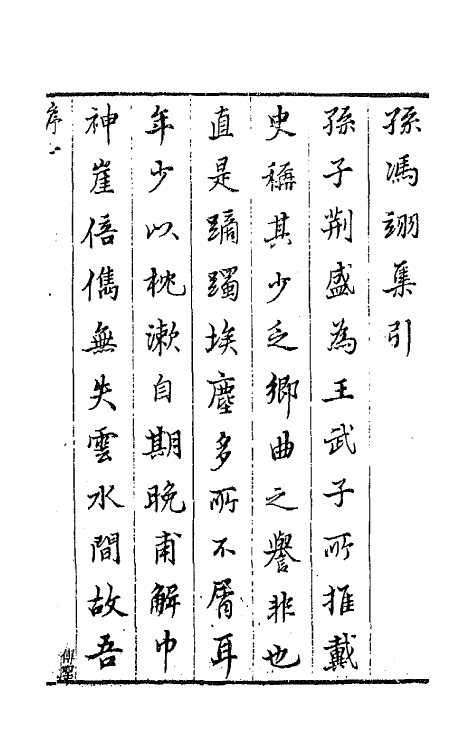 孫馮翊集引
孫子荆盛為王武子所推戴
史稱其少乏鄉曲之譽非也
直是蹢躅埃塵多所不屑耳
年少以枕漱自期晚甫解巾
神崖倍儁無失雲水間故吾
序一